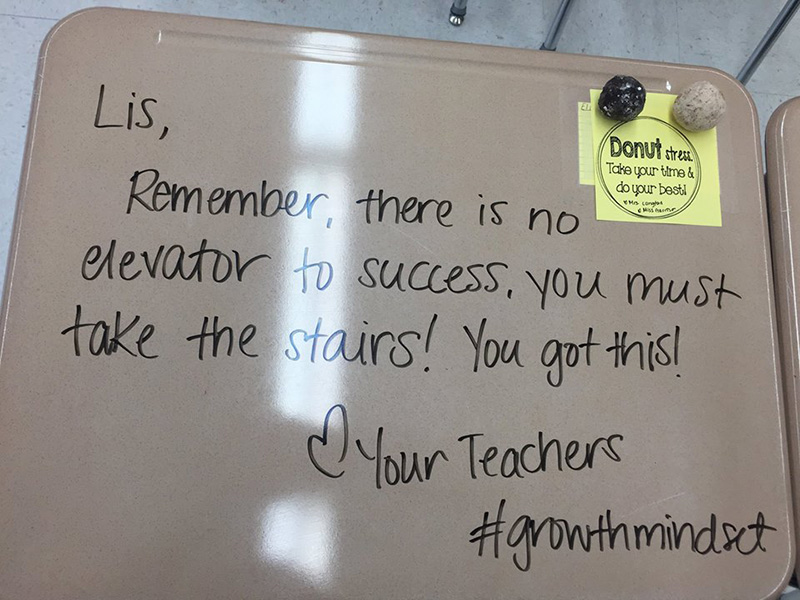 Lis,
Remember, there is no
elevator to success, you must
take the stairs! You got this!
Your Teachers
#growthmindset
Donut stress.
Take your time &
do your best!